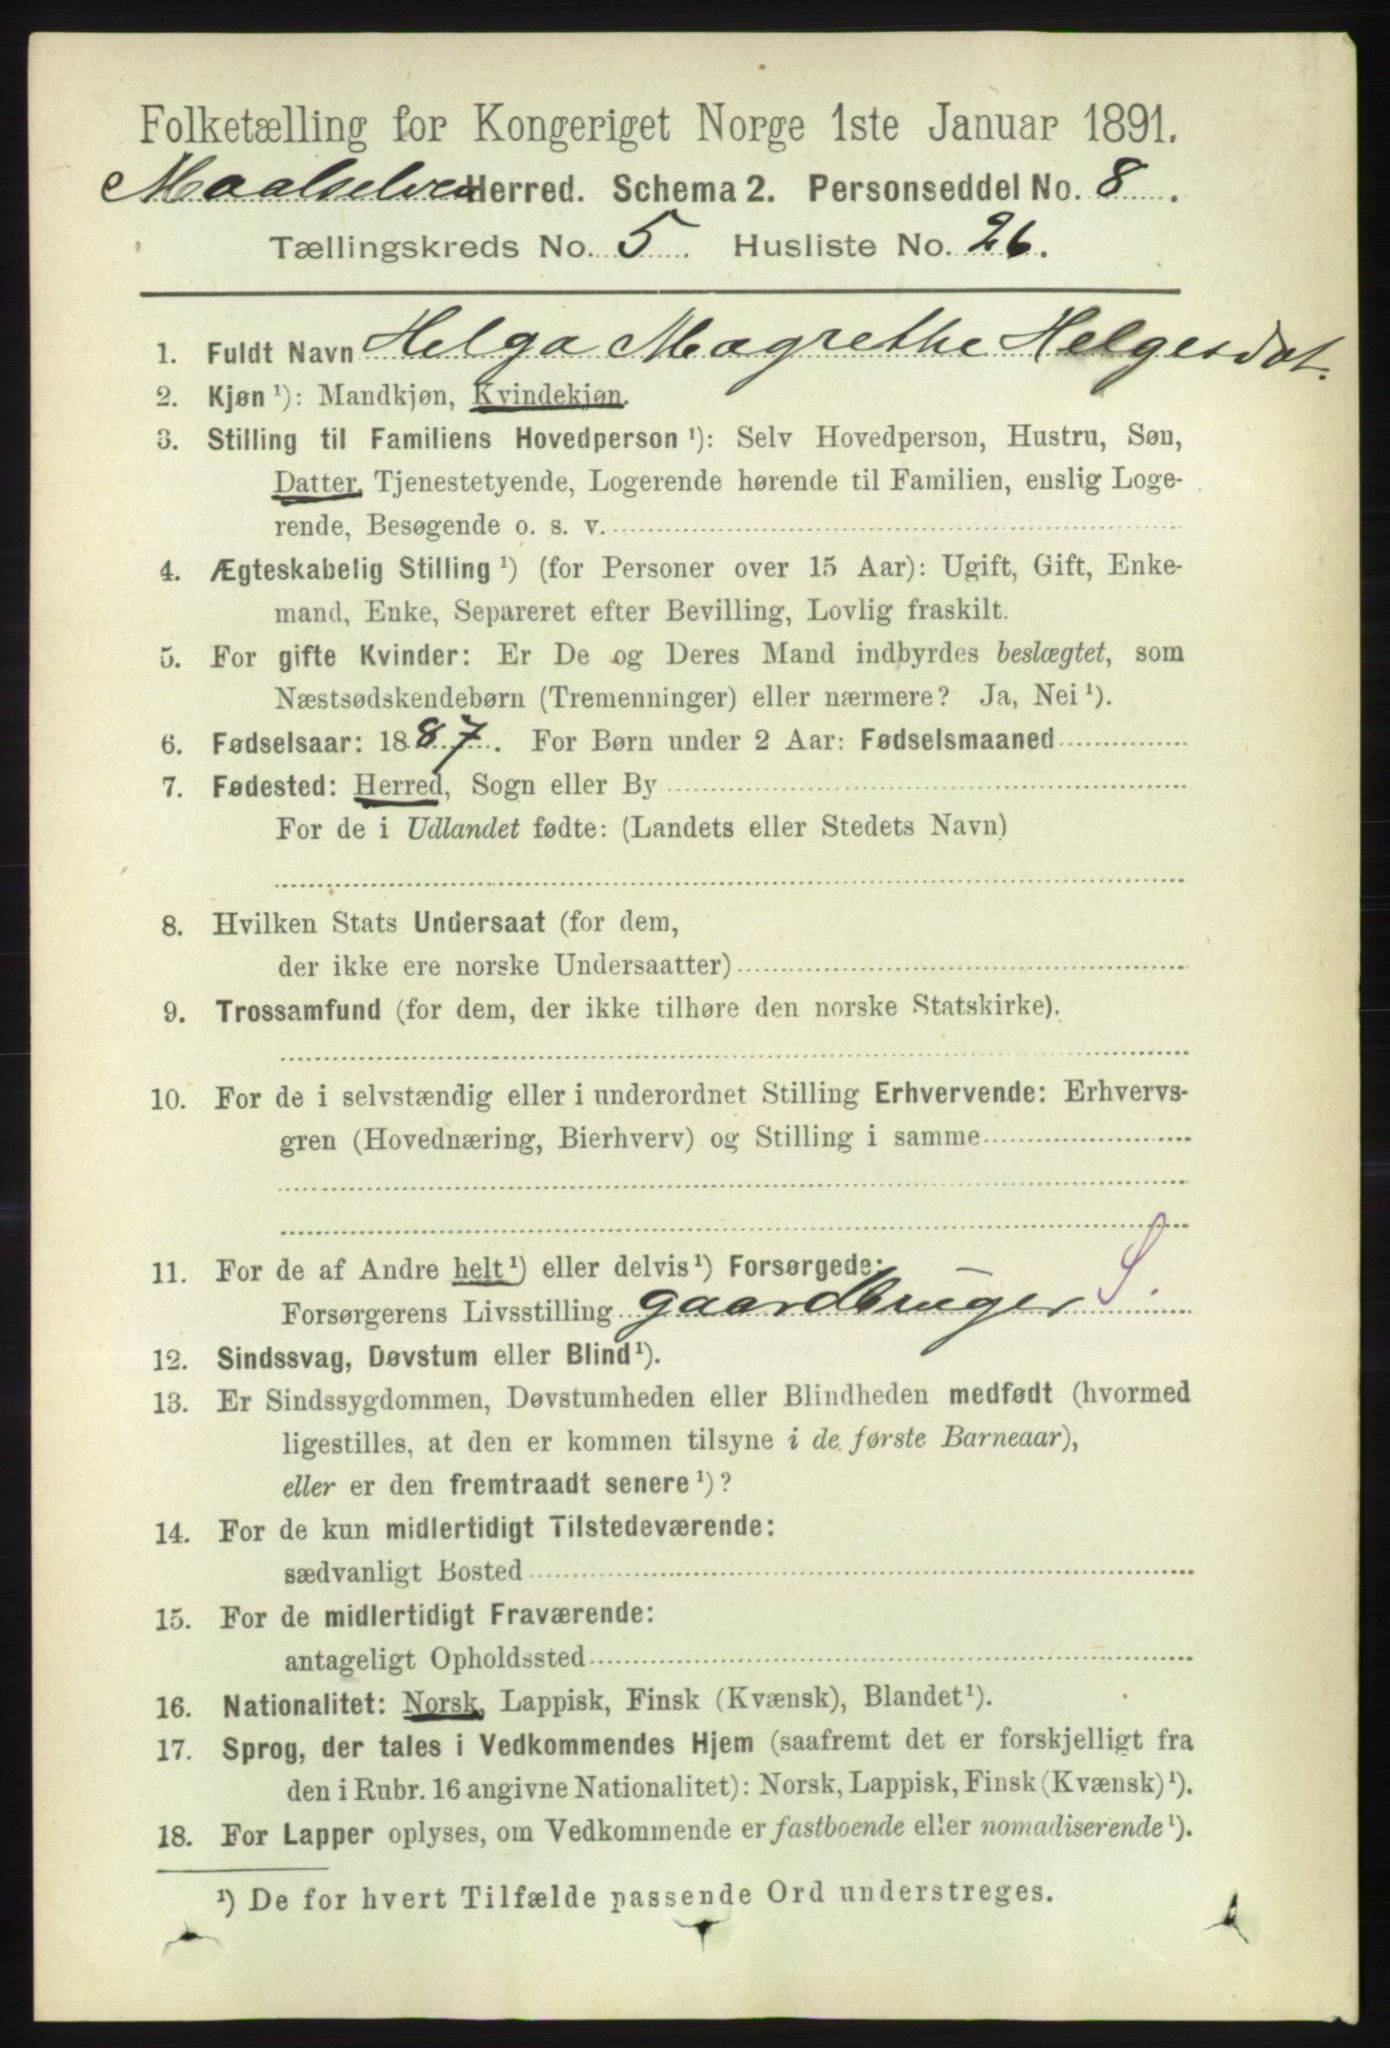 Folketælling for Kongeriget Norge 1ste Januar 1891.
Maalselven Herred. Schema 2. Personseddel No. 8.
Tællingskreds No. 5. Husliste No. 26.
1. Fuldt Navn Helga Magrethe Helgesdat.
2. Kjøn ¹): Mandkjøn, Kvindekjøn.
3. Stilling til Familiens Hovedperson ¹): Selv Hovedperson, Hustru, Søn,
Datter, Tjenestetyende, Logerende hørende til Familien, enslig Loge-
rende, Besøgende o. s. v.
4. Ægteskabelig Stilling ¹) (for Personer over 15 Aar): Ugift, Gift, Enke-
mand, Enke, Separeret efter Bevilling, Lovlig fraskilt.
5. For gifte Kvinder: Er De og Deres Mand indbyrdes beslægtet, som
Næstsødskendebørn (Tremenninger) eller nærmere? Ja, Nei ¹).
6. Fødselsaar: 1887. For Børn under 2 Aar: Fødselsmaaned
7. Fødested: Herred, Sogn eller By
For de i Udlandet fødte: (Landets eller Stedets Navn)
8. Hvilken Stats Undersaat (for dem,
der ikke ere norske Undersaatter)
9. Trossamfund (for dem, der ikke tilhøre den norske Statskirke).
10. For de i selvstændig eller i underordnet Stilling Erhvervende: Erhvervs-
gren (Hovednæring, Bierhverv) og Stilling i samme
11. For de af Andre helt ¹) eller delvis ¹) Forsørgede:
Forsørgerens Livsstilling gaardbruger S.
12. Sindssvag, Døvstum eller Blind ¹).
13. Er Sindssygdommen, Døvstumheden eller Blindheden medfødt (hvormed
ligestilles, at den er kommen tilsyne i de første Barneaar),
eller er den fremtraadt senere ¹)?
14. For de kun midlertidigt Tilstedeværende:
sædvanligt Bosted
15. For de midlertidigt Fraværende:
antageligt Opholdssted
16. Nationalitet: Norsk, Lappisk, Finsk (Kvænsk), Blandet ¹).
17. Sprog, der tales i Vedkommendes Hjem (saafremt det er forskjelligt fra
den i Rubr. 16 angivne Nationalitet): Norsk, Lappisk, Finsk (Kvænsk) ¹).
18. For Lapper oplyses, om Vedkommende er fastboende eller nomadiserende ¹).
¹) De for hvert Tilfælde passende Ord understreges.